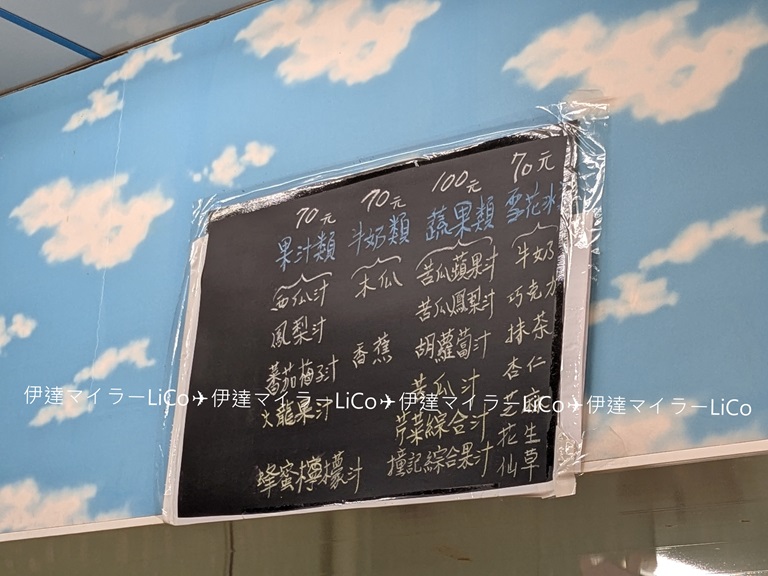 70元
果汁類
西瓜汁
鳳梨汁
蕃茄梅子汁
火龍果汁
蜂蜜檸檬汁
70元
牛奶類
木瓜
香蕉
100元
蔬果類
苦瓜蘋果汁
苦瓜鳳梨汁
胡蘿蔔汁
苦瓜汁
芹菜綜合汁
撞記綜合果汁
70元
雪花冰
牛奶
巧克力
抹茶
杏仁
芝麻
花生
仙草
伊達マイラーLiCo✈伊達マイラーLiCo✈伊達マイラーLiCo✈伊達マイラーLiCo